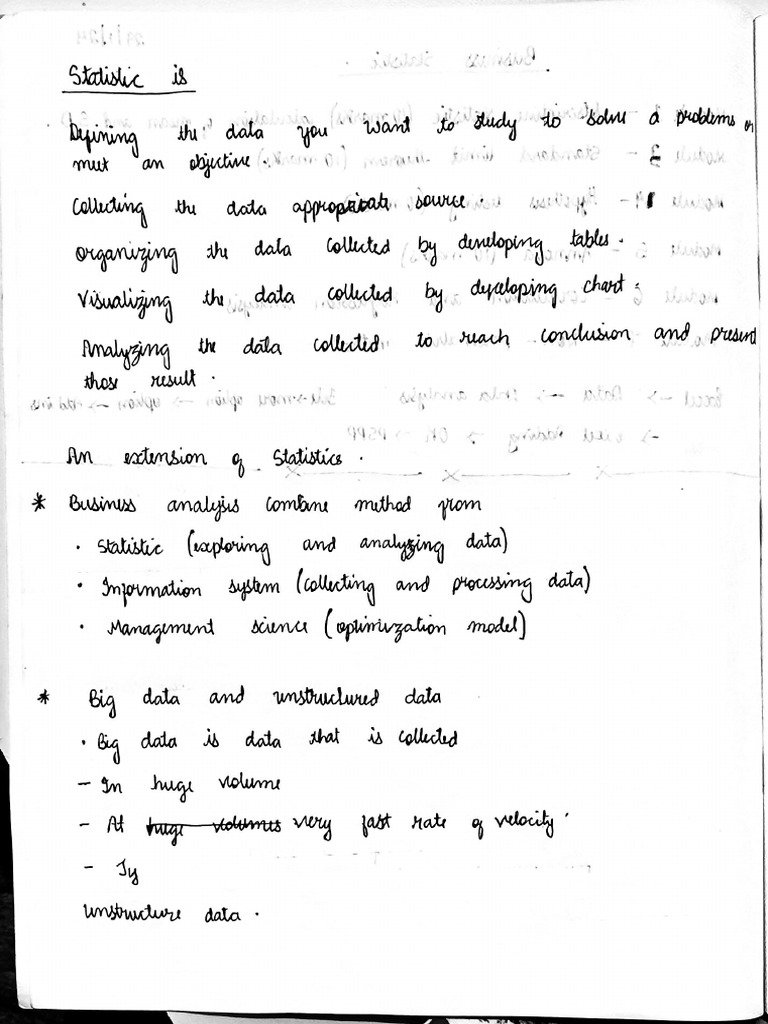 Statistic is
Defining the data you want to study to solve a problems or
meet an objective.
Collecting the data appropriate source.
Organizing the data collected by developing tables.
Visualizing the data collected by developing chart.
Analyzing the data collected to reach conclusion and present
those result.
An extension of Statistics.
* Business analysis combine method from
· Statistic (exploring and analyzing data)
· Information system (collecting and processing data)
· Management science (optimization model)
* Big data and unstructured data
· Big data is data that is collected
- In huge volume
- At huge volumes very fast rate of velocity.
- Ty
Unstructure data.